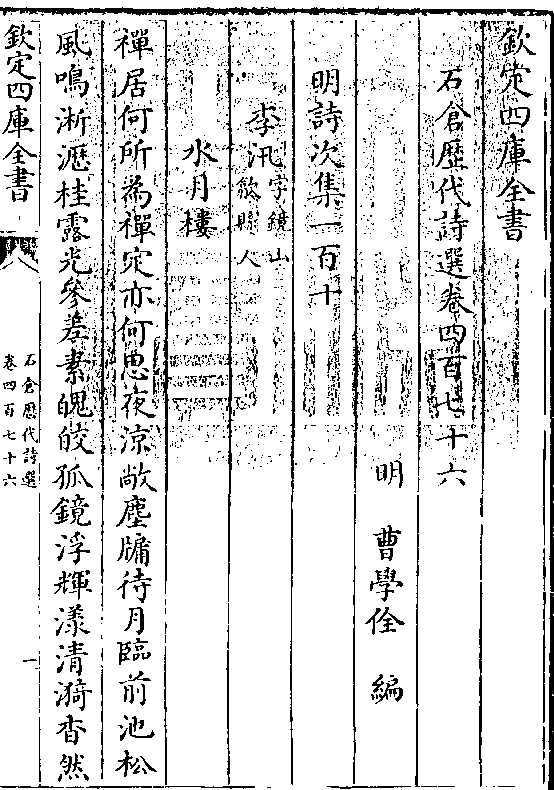 欽定四庫全書
石倉歴代詩選卷四百七十六
明 曹學佺 編
明詩次集一百十
李汛字鏡山
歙縣人
水月樓
禪居何所為禪定亦何思夜涼敞塵牗待月臨前池松
風鳴淅瀝桂露光參差素魄皎孤鏡浮輝漾清漪杳然
欽定四庫全書
石倉歴代詩選
卷四百七十六
一